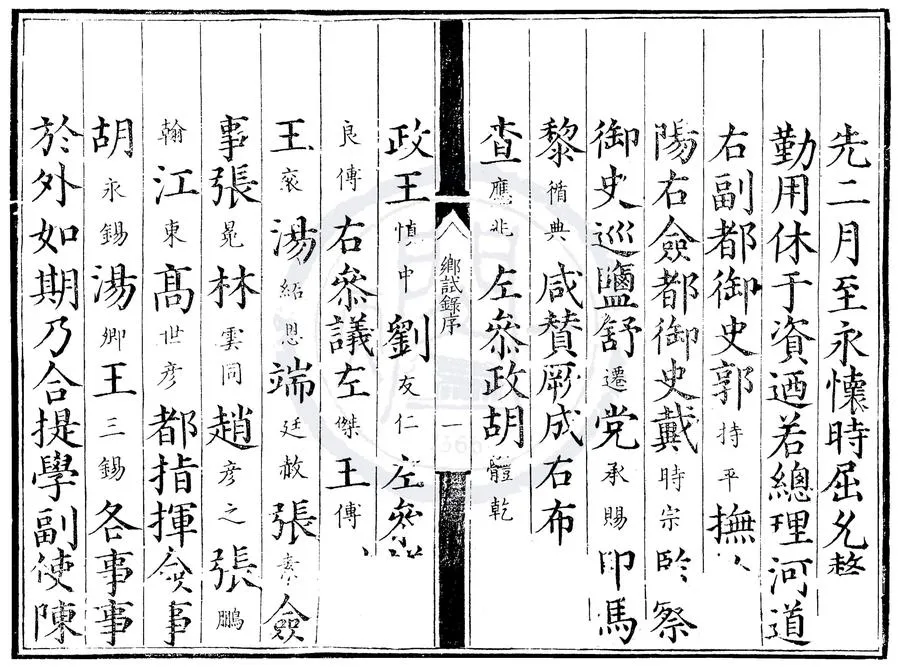 先二月至永懷時屈允
勤用休于資迺若總理河道
右副都御史郭持平撫
陽右僉都御史戴時宗
御史巡鹽舒遷党承賜印馬
黎循典咸賛厥成右布
查應兆左叅政胡體乾
鄉試錄序
一
政王慎中劉友仁左叅
良傳右叅議左傑王傳
王衮湯紹恩端廷赦張素僉
事張晃林雲同趙彥之張鵬
翰江東高世彥都指揮僉事
胡永錫湯卿王三錫各事事
於外如期乃合提學副使陳